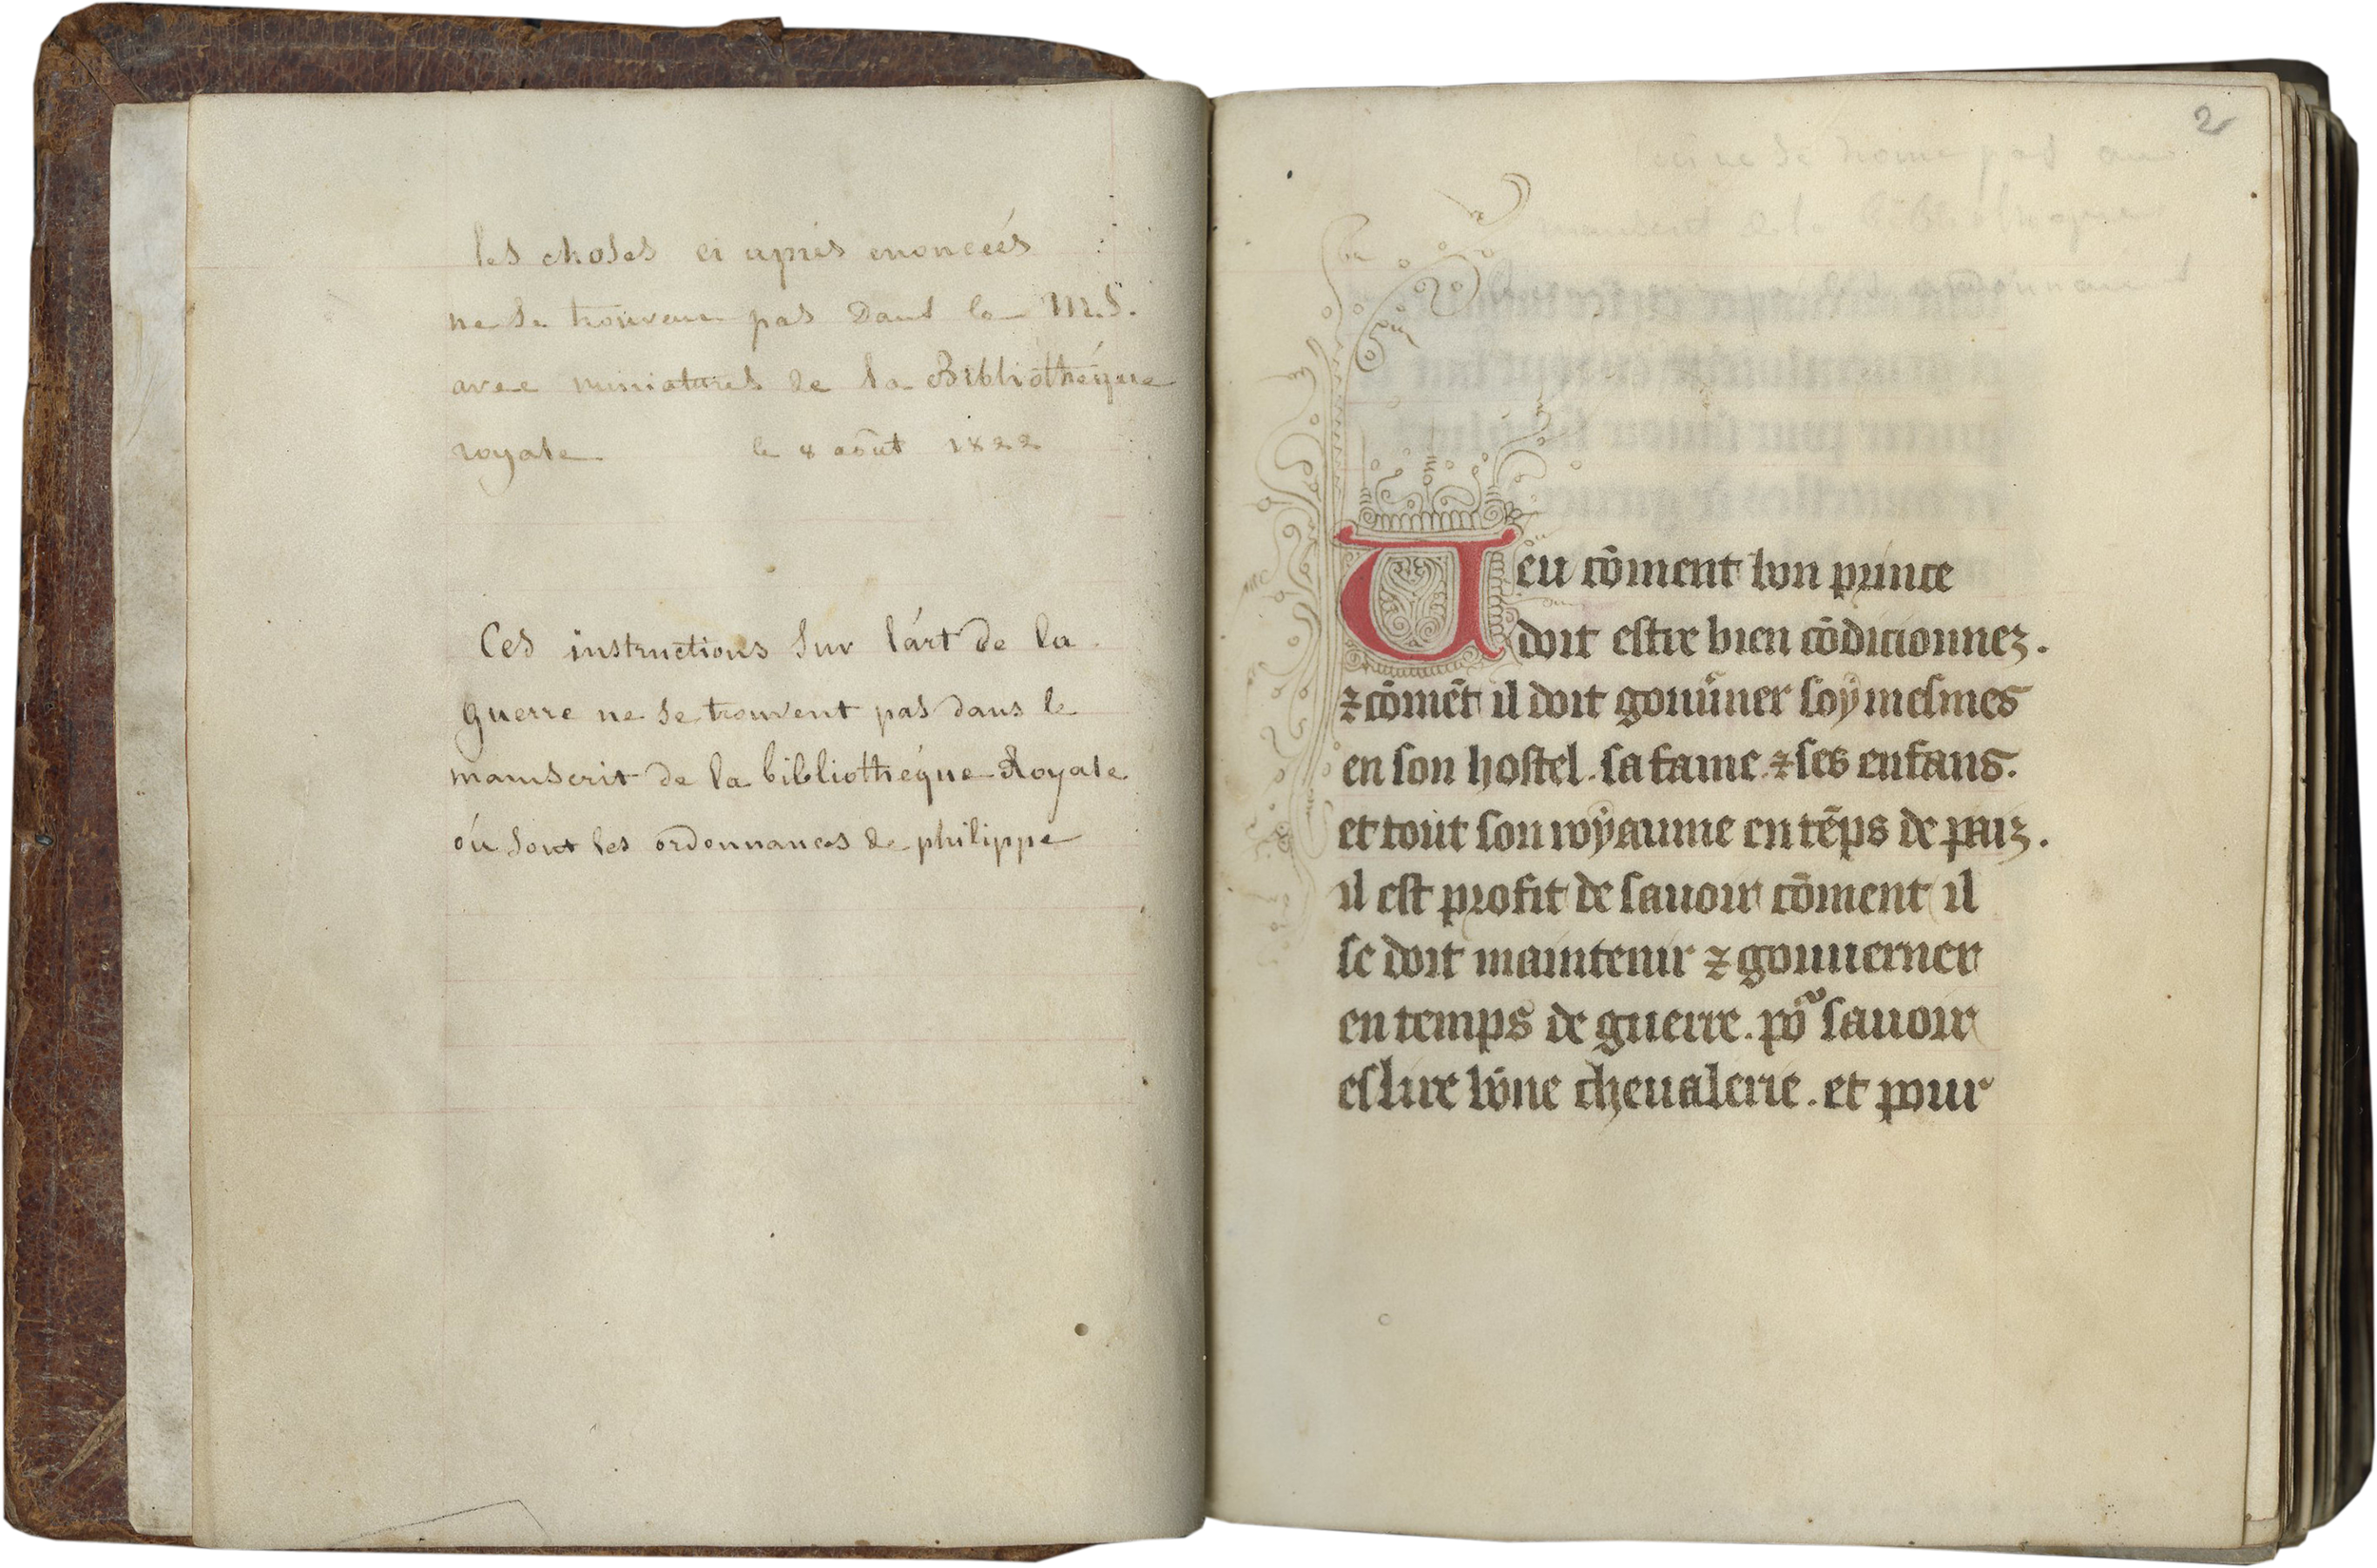 les choses ci après enoncées
ne se trouvent pas dans le M.S.
avec miniatures de la Bibliothéque
royale le 8 août 1822
Ces instructions sur l'art de la
guerre ne se trouvent pas dans le
manuscrit de la bibliothéque Royale
où sont les ordonnances de philippe
2
Ueu cōment bon prince
doit estre bien cōdicionnez.
⁊ cōmēt il doit gouūner soy mesmes
en son hostel. sa fame. ⁊ ses enfans.
et tout son royaume en tēps de paiz.
il est profit de sauoir cōment il
se doit maintenir ⁊ gouuerner
en temps de guerre. po᷑ sauoir
eslire bōne cheualerie. et pour